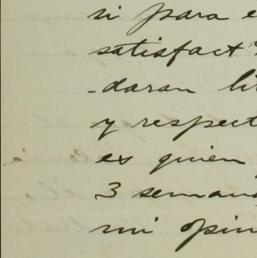 si para e
satisfact
-daran li
y respect
es quien
3 semana
mi opin